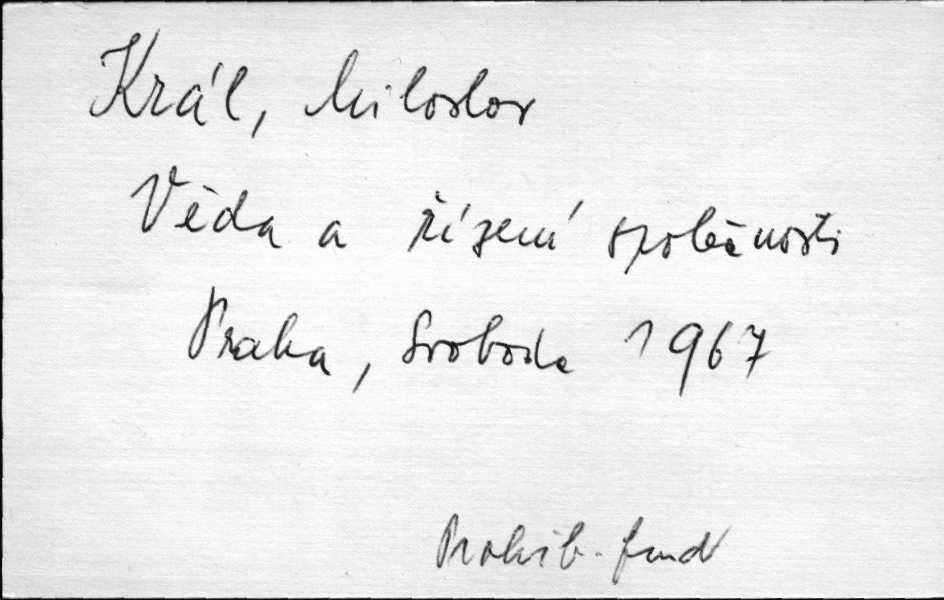 Král, Miloslav
Věda a řízení společnosti
Praha, Svoboda 1967
Prohib. fond